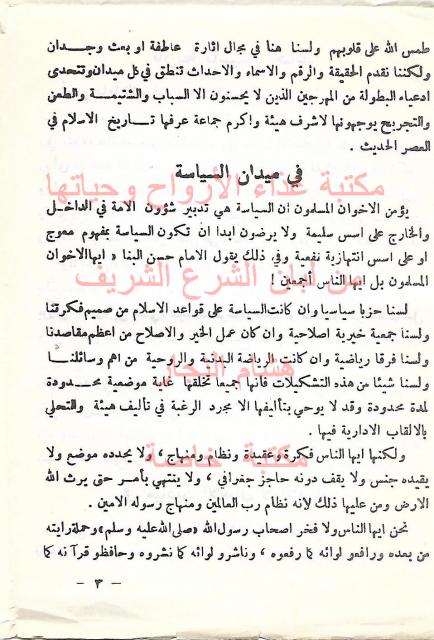 طمس الله على قلوبهم ولسنا هنا في مجال اثارة عاطفة او بعث وجدان
ولكننا نقدم الحقيقة والرقم والاسماء والاحداث تنطق في كل ميدان ونتحدى
ادعياء البطولة من المهرجين الذين لا يحسنون الا السباب والشتيمة والطعن
والتجريح يوجهونها لاشرف هيئة واكرم جماعة عرفها تاريخ الاسلام في
العصر الحديث .
في ميدان السياسة
مكتبة غذاء الأرواح وحياتها
يؤمن الاخوان المسلمون أن السياسة هي تدبير شؤون الامة في الداخل
والخارج على اسس سليمة ولا يرضون ابدا ان تكون السياسة بمفهوم معوج
او على اسس انتهازية نفعية وفي ذلك يقول الامام حسن البنا « ايها الاخوان
المسلمون بل ايها الناس أجمعين !
من لبان الشرع الشريف
لسنا حزبا سياسيا وان كانت السياسة على قواعد الاسلام من صميم فكرتنا
ولسنا جمعية خيرية اصلاحية وان كان عمل الخير والاصلاح من اعظم مقاصدنا
ولسنا فرقا رياضية وان كانت الرياضة البدنية والروحية من اهم وسائلنا
هشام النجار
ولسنا شيئا من هذه التشكيلات فانها جميعا تخلقها غاية موضعية محدودة
لمدة محدودة وقد لا يوحي بتأليفها الا مجرد الرغبة في تأليف هيئة والتحلي
بالالقاب الادارية فيها .
مكتبة خاصة
ولكننا ايها الناس فكرة وعقيدة ونظام ومنهاج ، ولا يحدده موضع ولا
يقيده جنس ولا يقف دونه حاجز جغرافي ، ولا ينتهي بأمر حتى يرث الله
الارض ومن عليها ذلك لانه نظام رب العالمين ومنهاج رسوله الامين .
نحن ايها الناس ولا فخر اصحاب رسول الله «صلى الله عليه وسلم» وحملة رايته
من بعده ورافعو لوائه كما رفعوه ، وناشرو لوائه كما نشروه وحافظو قرآنه كما
- ٣ -